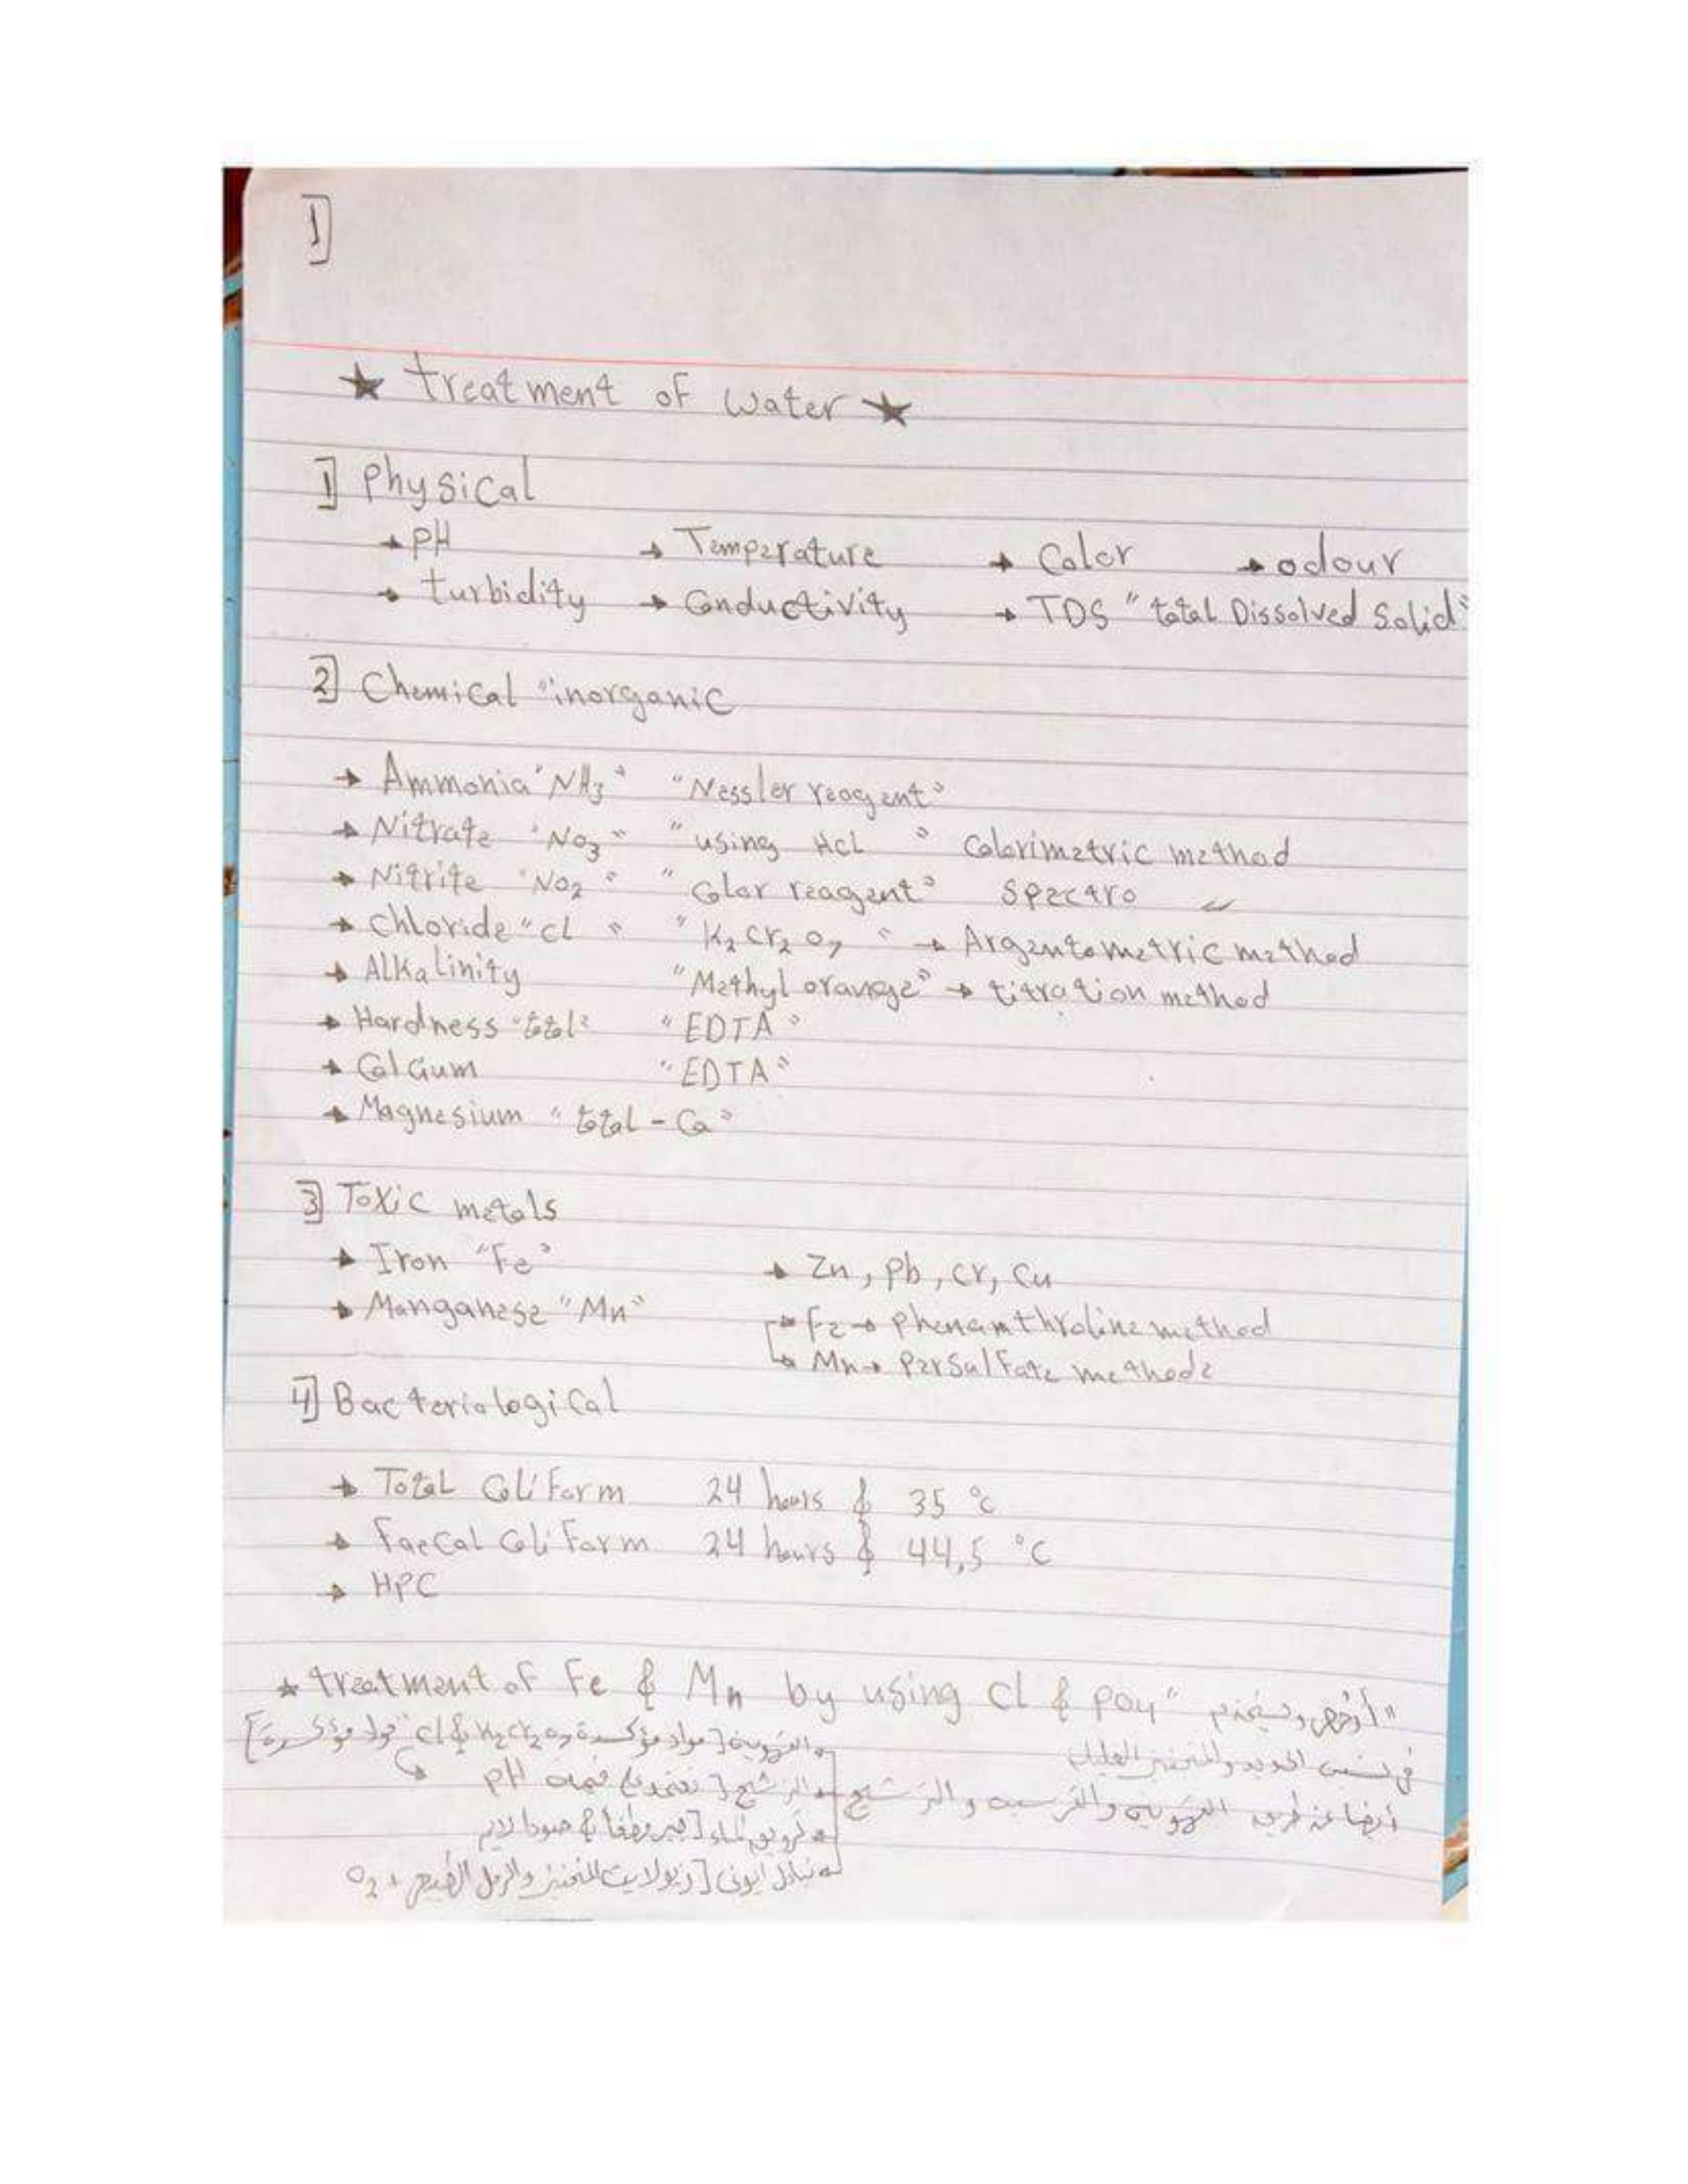 1]
★ treatment of water ★
1] Physical
→ PH → Temperature → Color → odour
→ turbidity → Conductivity → TDS "total Dissolved Solid"
2] Chemical "inorganic
→ Ammonia "NH3" "Nessler reagent"
→ Nitrate "NO3" "using HCL" Colorimetric method
→ Nitrite "NO2" "Color reagent" Spectro 〃
→ Chloride "cl" "K2Cr2O7" → Argentometric method
→ Alkalinity "Methyl orange" → titration method
→ Hardness "total" "EDTA"
→ Calcium "EDTA"
→ Magnesium "total - Ca"
3] Toxic metals
→ Iron "Fe" → Zn, Pb, Cr, Cu
→ Manganese "Mn" → Fe → phenanthroline method
→ Mn → Persulfate methode
4] Bacteriological
→ Total Coliform 24 hours & 35 °c
→ Faecal Coliform 24 hours & 44,5 °C
→ HPC
★ treatment of Fe & Mn by using cl & poy "أرخص ويستخدم"
في نسب الحديد والمنجنيز القليلة
أيضا عن طريق التهوية والترسيب والترشيح
→ التهوية [مواد مؤكسدة K2Cr2O7 & cl "مواد مؤكسدة]
→ الترشيح [تعتمد على قيمة pH
→ ترويق الماء [جير مطفأ & صودا
→ تبادل أيوني [زيولايت المنجنيز والرمل + O2